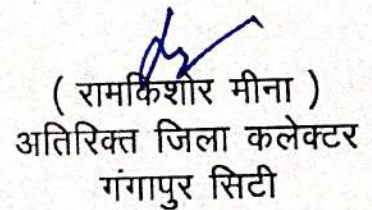 ( रामकिशोर मीना )
अतिरिक्त जिला कलेक्टर
गंगापुर सिटी